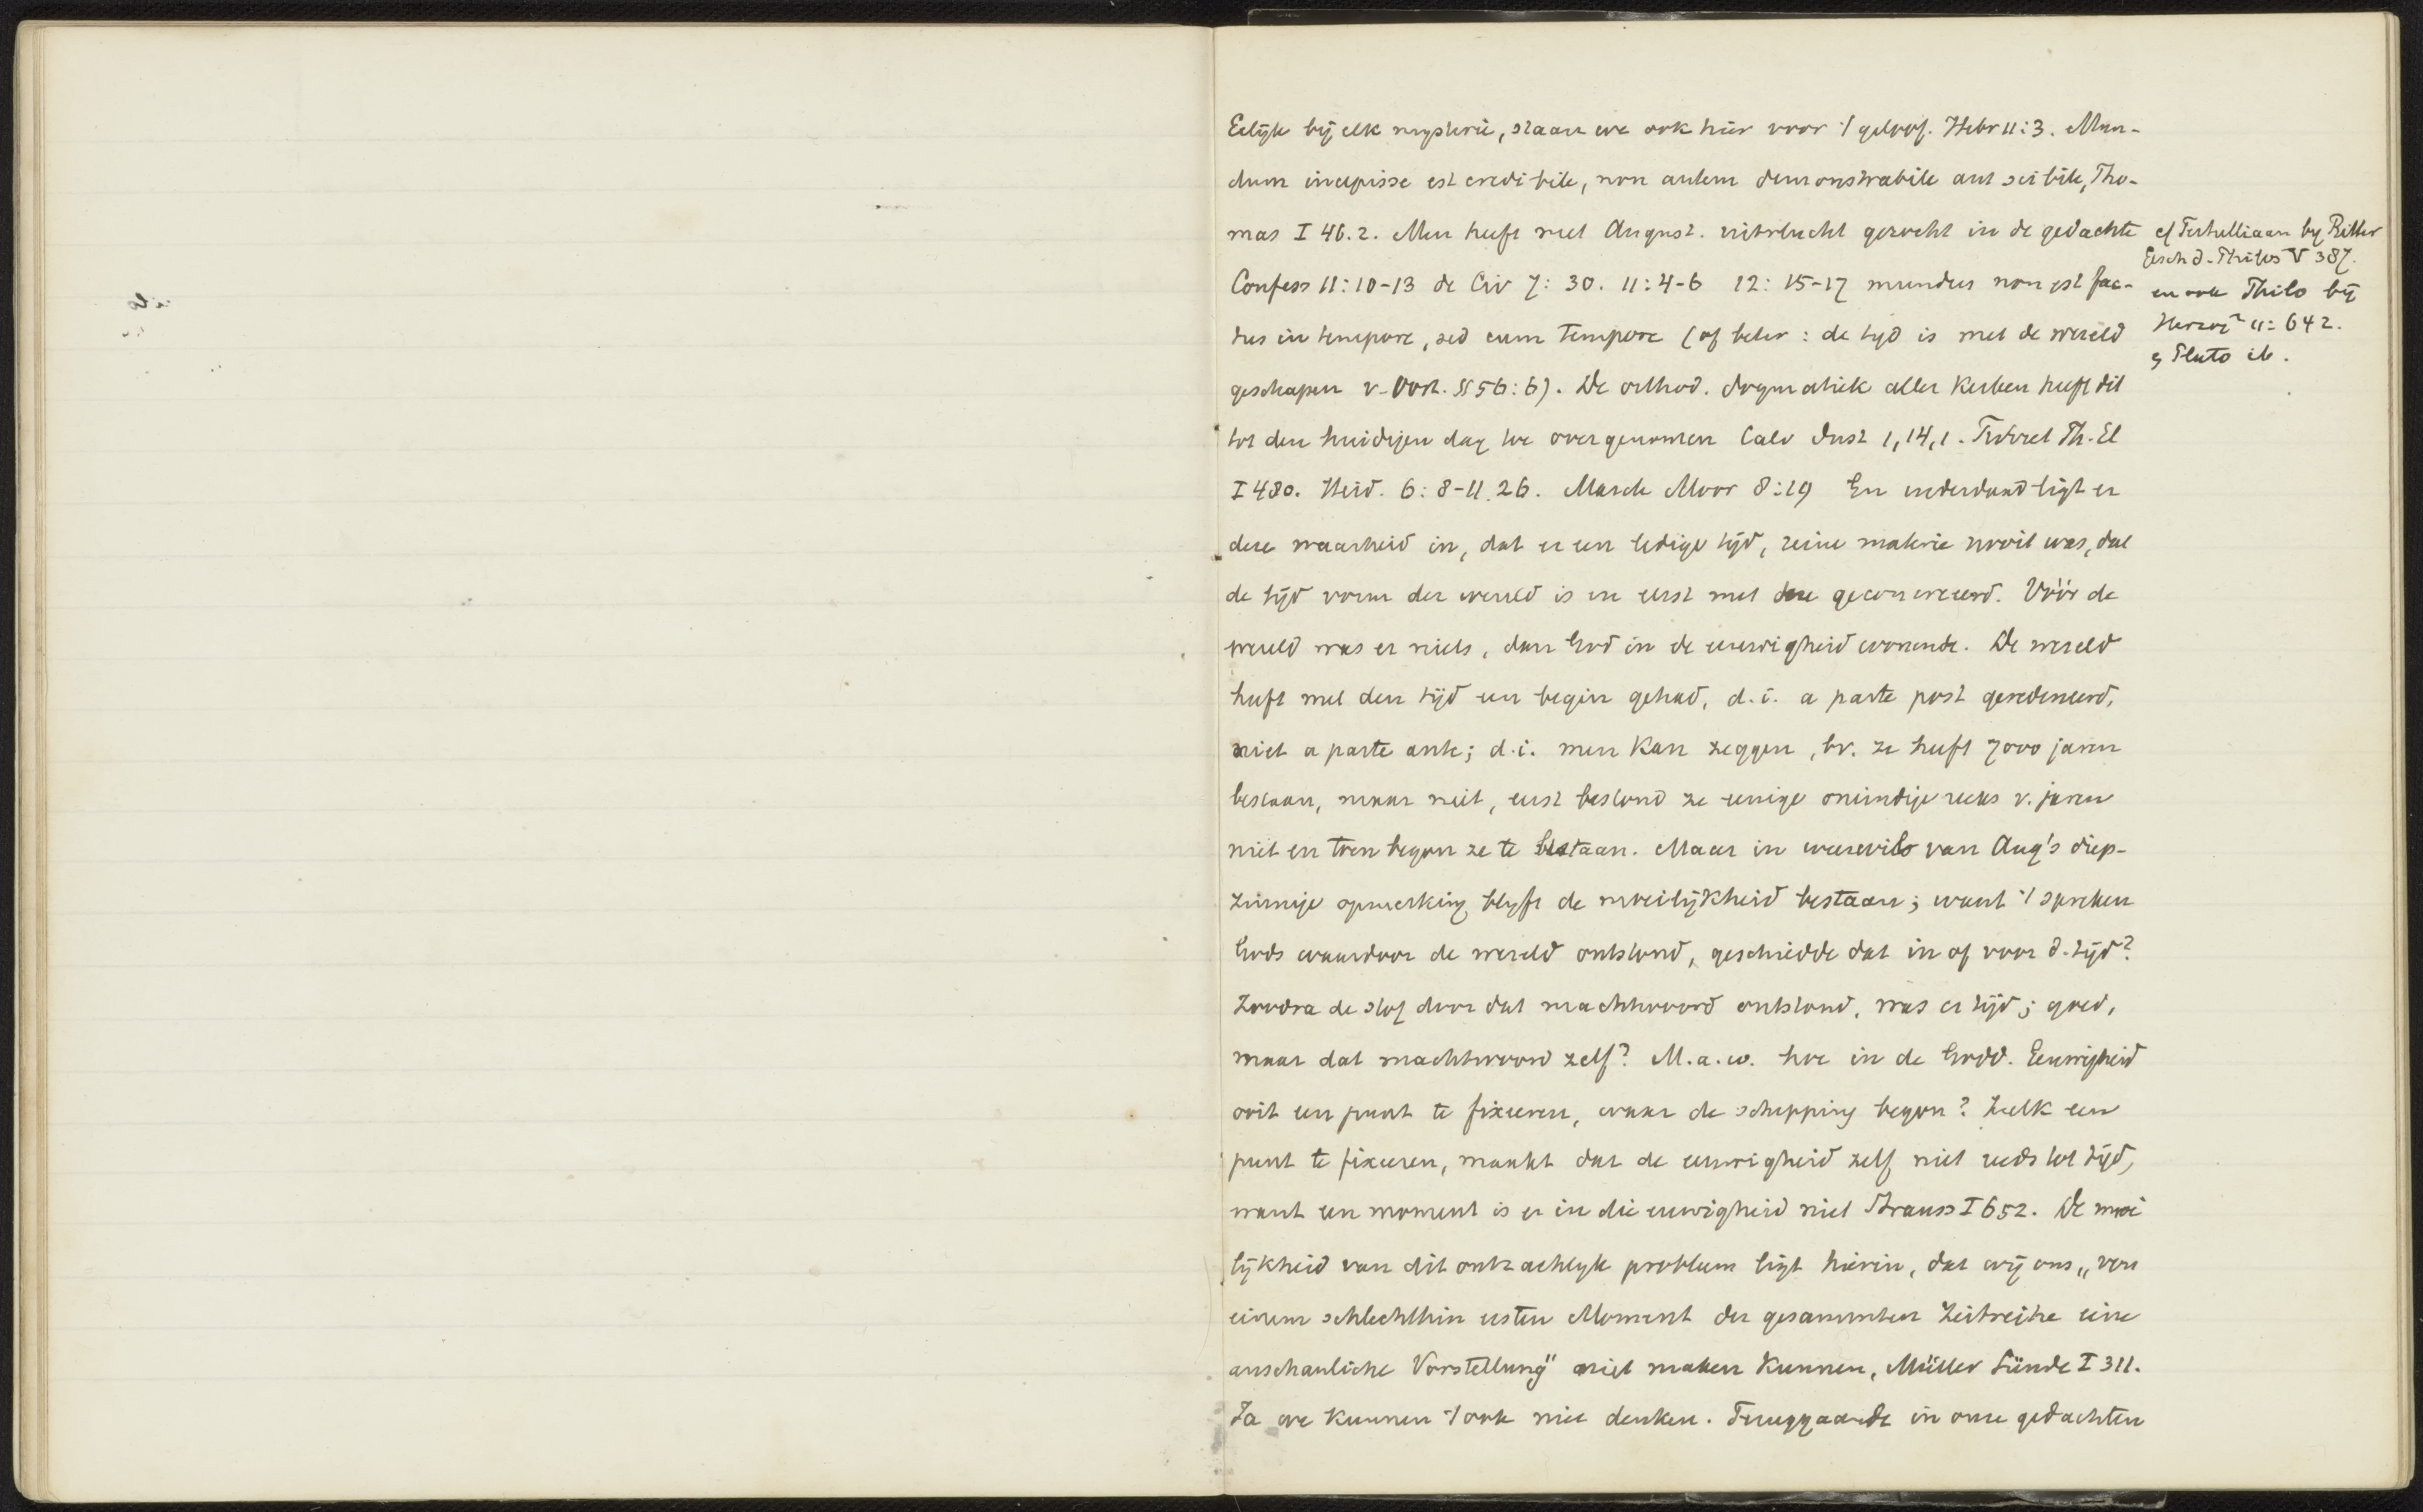 Gelijk bij elk mysterie, staan we ook hier voor 't geloof. Hebr 11:3. Mun-
dum incepisse est credibile, non autem demonstrabile aut scibile, Tho-
mas I 46.2. Men heeft met August. uitvlucht gezocht in de gedachte
Confess 11:10-13 de Civ 7:30. 11:4-6 12:15-17 mundus non est fac-
tus in tempore, sed cum tempore (of beter: de tyd is met de wereld
geschapen v. Oort. § 56:6). De orthod. dogmatiek aller Kerken heeft dit
tot den huidigen dag toe overgenomen Calv Inst 1,14,1. Turret Th. El
I 480. Heid. 6:8-11.26. Marck Moor 8:19) En inderdaad ligt er
deze waarheid in, dat er een ledige tijd, zeine materie nooit was, dat
de tijd vorm der wereld is en eerst met deze geconcreeerd. Vóór de
wereld was er niets, dan God in de eeuwigheid wonende. De wereld
heeft met den tijd een begin gehad, d.i. a parte post geredeneerd,
niet a parte ante; d.i. men Kan zeggen, bv. ze heeft 7000 jaren
bestaan, maar niet, eerst bestond ze eenige oneindige reeks v. jaren
niet en toen begon ze te bestaan. Maar in weerwil van Aug's diep-
zinnige opmerking blyft de moeilijkheid bestaan; want 't spreken
Gods waardoor de wereld ontstond, geschiedde dat in of voor d. tijd?
Zoodra de stof door dat machtwoord ontstond, was er tijd; goed,
maar dat machtwoord zelf? M.a.w. hoe in de Godd. Eeuwigheid
ooit een punt te fixeeren, waar de schepping begon? Zulk een
punt te fixeeren, maakt dat de eeuwigheid zelf niet reeds tot tijd,
want een moment is er in die eeuwigheid niet Strauss I 652. De moei
lijkheid van dit ontzachlyk probleem ligt hierin, dat wij ons „von
einem schlechthin ersten Moment der gesammten Zeitreihe eine
anschauliche Vorstellung" niet maken Kunnen, Müller Sünde I 311.
Ja we Kunnen 't ook niet denken. Teruggaande in onze gedachten
cf Tertulliaan by Ritter
Gesch d. Philos V 387.
en ook Philo bij
Herzog² 11:642.
Plato ib.